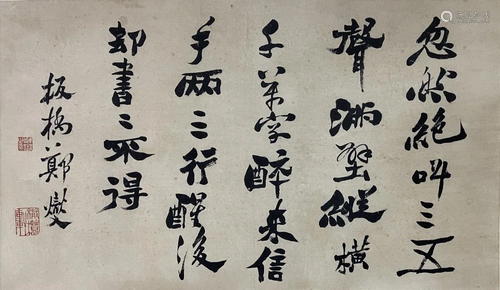 忽然絕叫三五
聲滿壁縱橫
千萬字醉來信
手兩三行醒後
却書書不得
板橋鄭燮